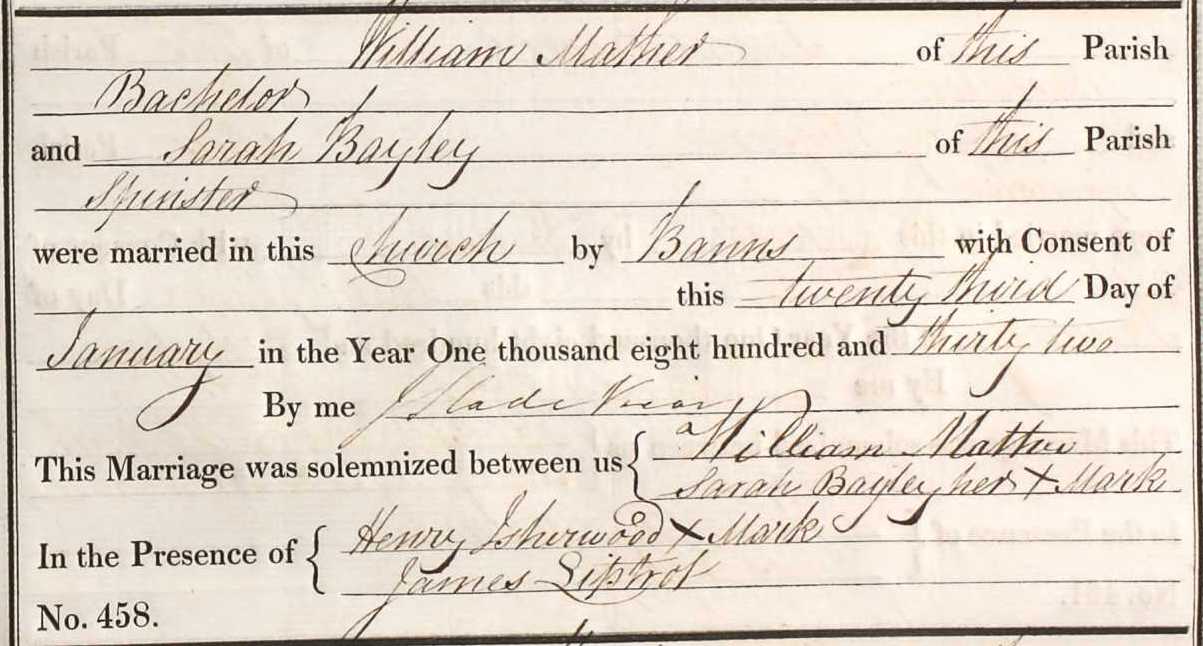 William Mather of this Parish
Bachelor
and Sarah Bayley of this Parish
Spinster
were married in this Church by Banns with Consent of
this twenty third Day of
January in the Year One thousand eight hundred and thirty two
By me J Slade Vicar
This Marriage was solemnized between us { William Mather
Sarah Bayley her X Mark
In the Presence of { Henry Isherwood X Mark
James Liptrot
No. 458.